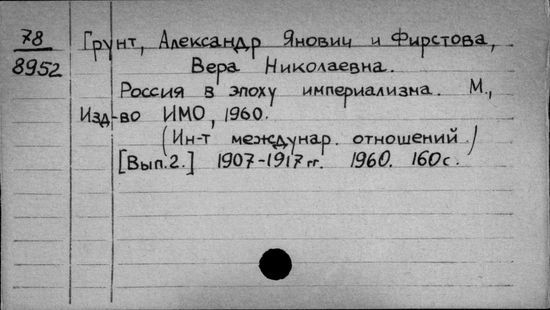 78
8952
Грунт, Александр Янович и Фирстова,
Вера Николаевна.
Россия в эпоху империализма. М.,
Изд-во ИМО, 1960.
(Ин-т междунар. отношений.)
[Вып.2.] 1907-1917 гг. 1960. 160 с.